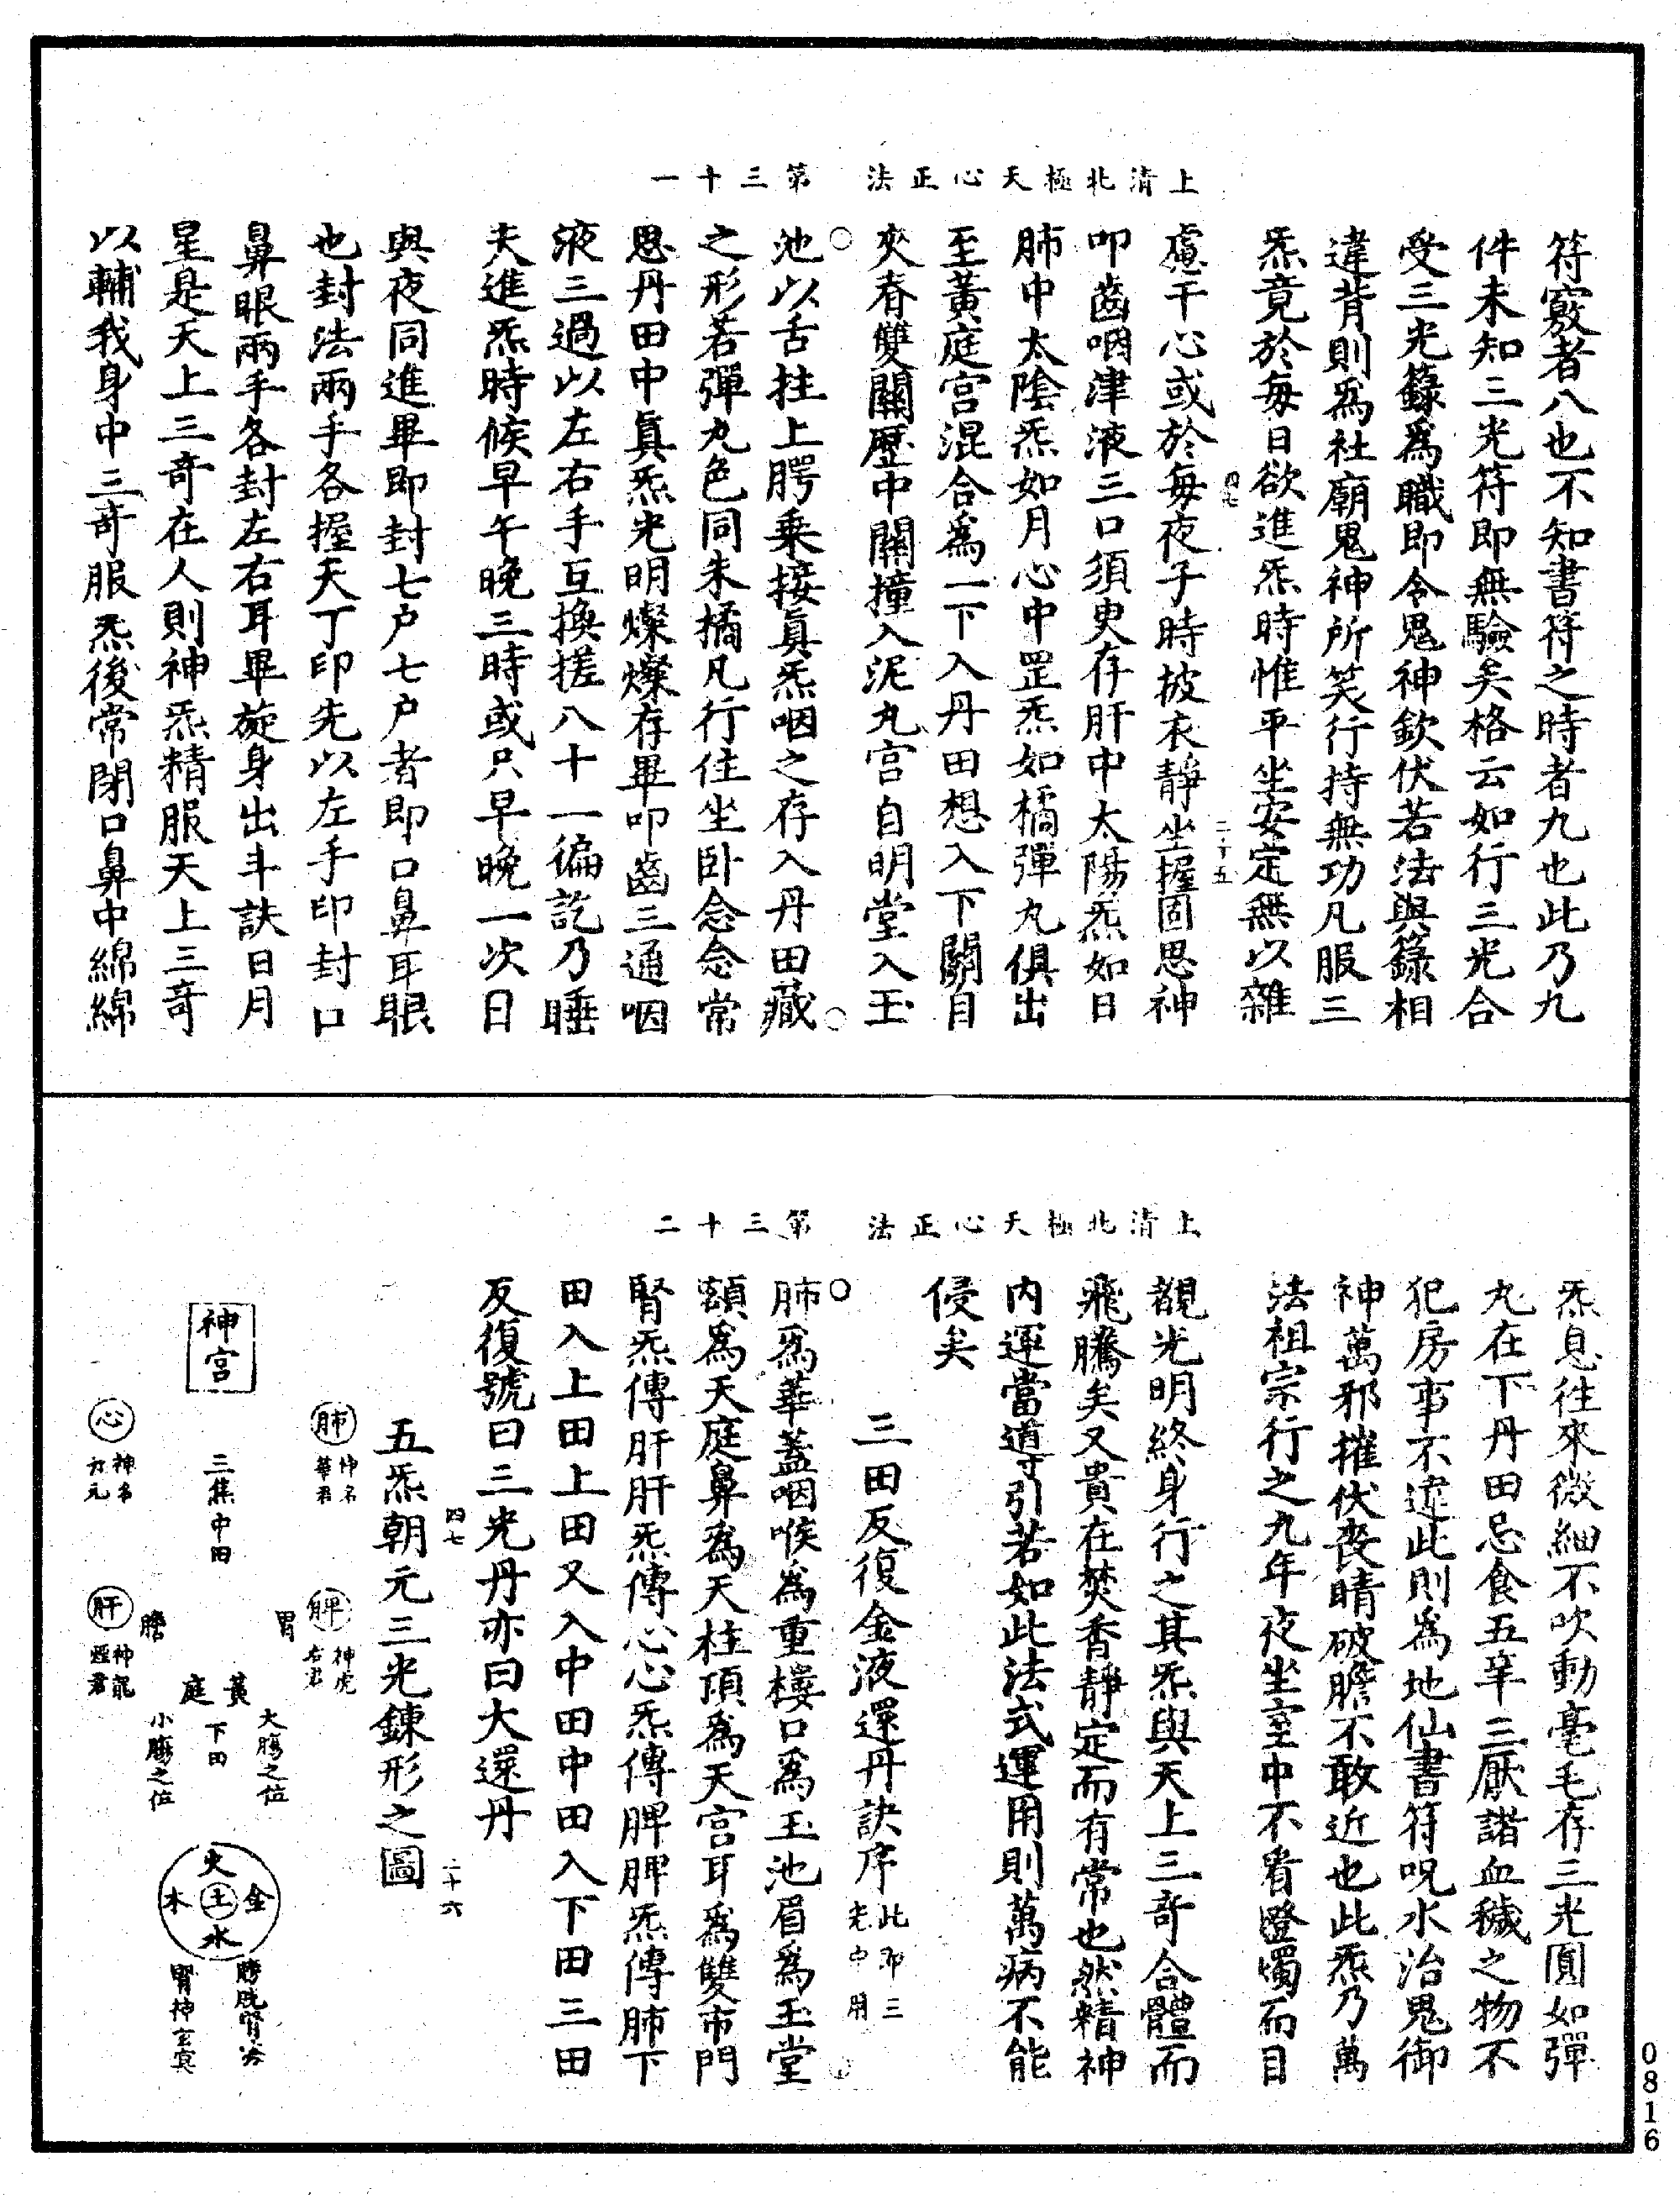 上清北極天心正法　第三十一
符竅者八也不知書符之時者九也此乃九
件未知三光符即無驗矣格云如行三光合
受三光籙爲職即令鬼神欽伏若法與籙相
違背則爲社廟鬼神所笑行持無功凡服三
炁竟於每日欲進炁時惟平坐安定無以雜
四七　二十五
慮干心或於每夜子時披衣靜坐握固思神
叩齒咽津液三口須臾存肝中太陽炁如日
肺中太陰炁如月心中罡炁如橘彈丸俱出
至黃庭宮混合爲一下入丹田想入下關自
夾脊雙關歷中關撞入泥丸宮自明堂入玉
池以舌拄上腭乗接眞炁咽之存入丹田藏
之形若彈丸色同朱橘凡行住坐卧念念常
思丹田中眞炁光明燦燦存畢叩齒三通咽
液三過以左右手互換搓八十一徧訖乃睡
夫進炁時候早午晚三時或只早晚一次日
與夜同進畢即封七户七户者即口鼻耳眼
也封法兩手各握天丁印先以左手印封口
鼻眼兩手各封左右耳畢旋身出斗訣日月
星是天上三奇在人則神炁精服天上三奇
以輔我身中三奇服炁後常閉口鼻中綿綿
上清北極天心正法　第三十二
炁息往來微細不吹動毫毛存三光圓如彈
丸在下丹田忌食五辛三厭諸血穢之物不
犯房事不違此則爲地仙書符呪水治鬼御
神萬邪摧伏喪睛破膽不敢近也此炁乃萬
法祖宗行之九年夜坐室中不看燈燭而目
覩光明終身行之其炁與天上三奇合體而
飛騰矣又貴在焚香靜定而有常也然精神
内運當導引若如此法式運用則萬病不能
侵矣
三田反復金液還丹訣序 此即三光中用
肺爲華蓋咽喉爲重樓口爲玉池眉爲玉堂
額爲天庭鼻爲天柱頂爲天宮耳爲雙市門
腎炁傳肝肝炁傳心心炁傳脾脾炁傳肺下
田入上田上田又入中田中田入下田三田
反復號曰三光丹亦曰大還丹
四七　二十六
五炁朝元三光鍊形之圖
肺 神名華君
神宮
心 神名丹元
三焦中田
脾 神虎右君
胃
肝 神龍煙君
膽
黃庭
下田
大腸之位
小腸之位
火
金 土 木
水
膀胱腎分
腎神玄冥
0816